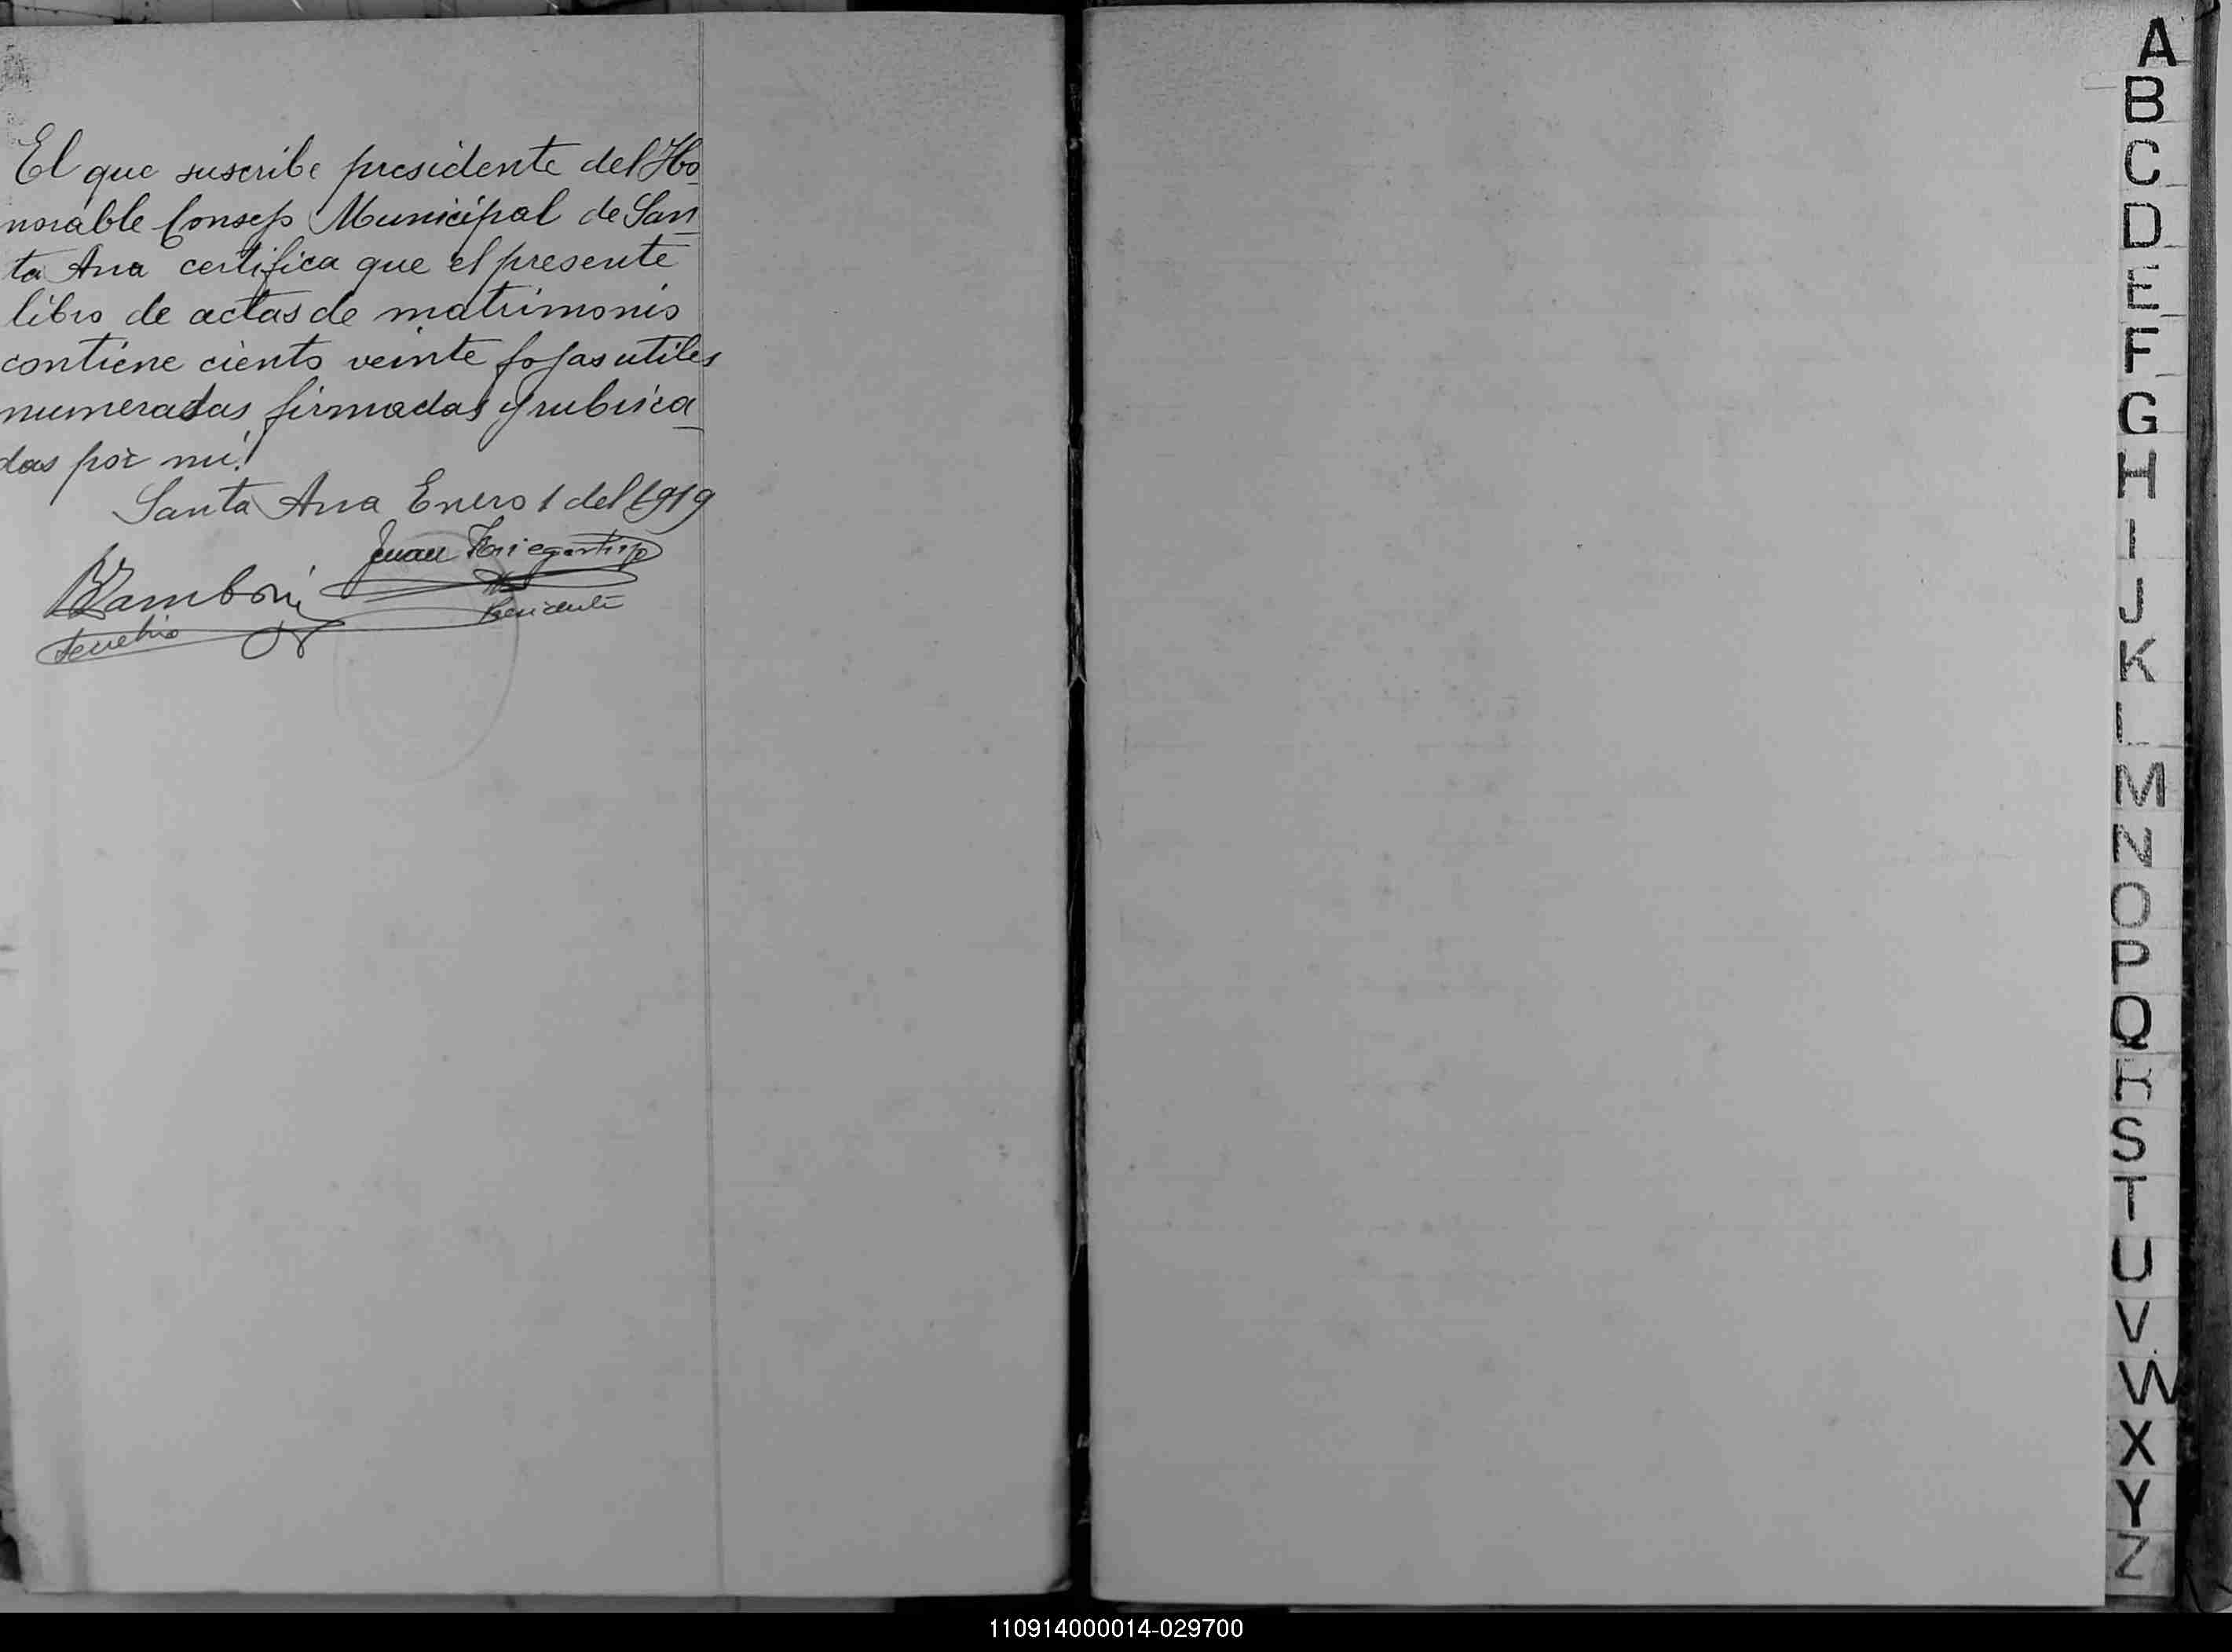 El que suscribe presidente del Ho
norable Consejo Municipal de San
ta Ana certifica que el presente
libro de actas de matrimonio
contiene ciento veinte fojas utiles
numeradas, firmadas y rubrica
das por mi.
Santa Ana Enero 1 del 1919
Juan
BZamboni
Presidente
A
B
C
D
E
F
G
H
I
J
K
L
M
N
O
P
Q
R
S
T
U
V
W
X
Y
Z
110914000014-029700